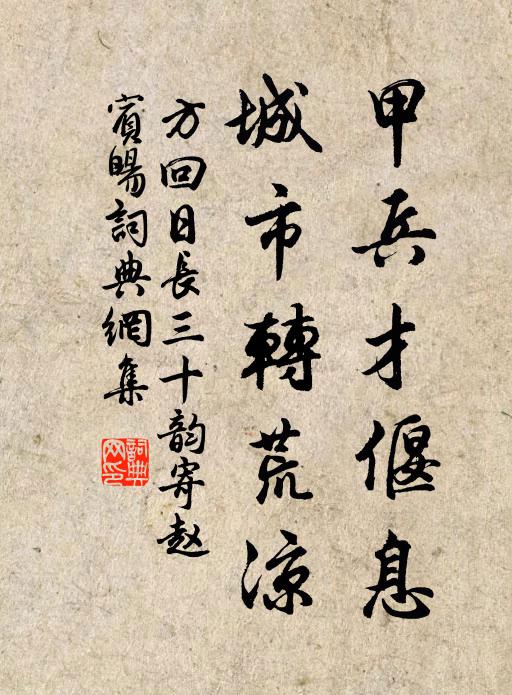 甲兵才偃息
城市轉荒涼
方回日長三十韵寄赵
賓暘詞典網集
詞典
网印